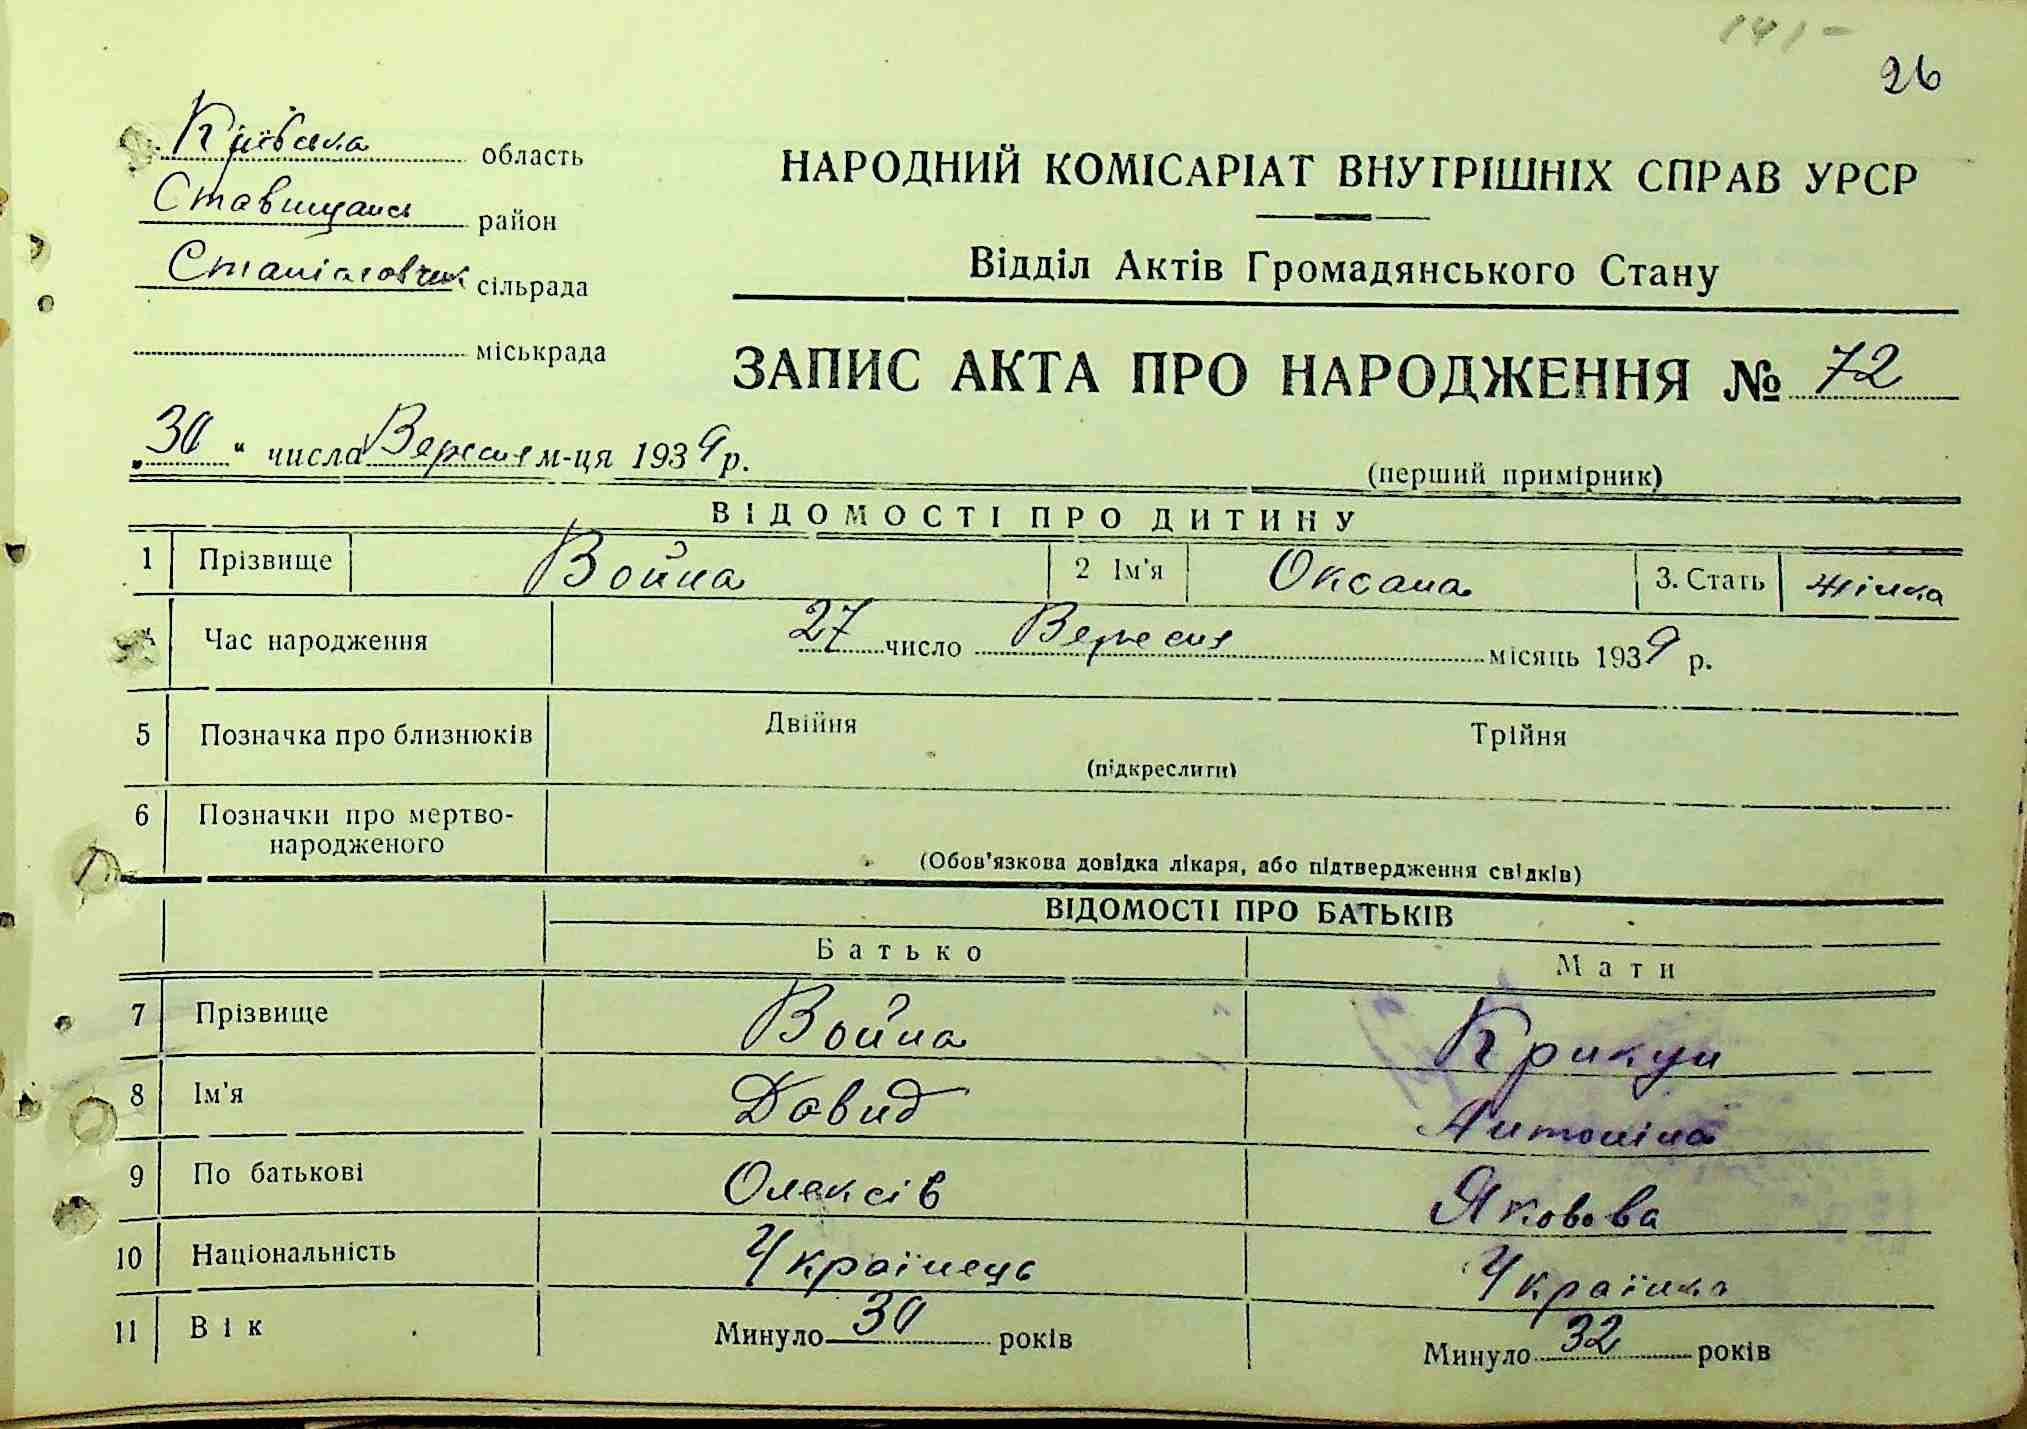 141-
26
Київська область
Ставищанськ район
Станіславчик сільрада
міськрада
НАРОДНИЙ КОМІСАРІАТ ВНУТРІШНІХ СПРАВ УРСР
Відділ Актів Громадянського Стану
ЗАПИС АКТА ПРО НАРОДЖЕННЯ № 72
„30“ числа Вересня м-ця 1939 р.
(перший примірник)
ВІДОМОСТІ ПРО ДИТИНУ
1 Прізвище Война 2 Ім'я Оксана 3. Стать жінка
Час народження 27 число Вересня місяць 1939 р.
5 Позначка про близнюків Двійня Трійня
(підкреслити)
6 Позначки про мертво-
народженого
(Обов'язкова довідка лікаря, або підтвердження свідків)
ВІДОМОСТІ ПРО БАТЬКІВ
Батько Мати
7 Прізвище Война Крикун
8 Ім'я Давид Антоніна
9 По батькові Олексів Яковова
10 Національність Українець Українка
11 Вік Минуло 30 років Минуло 32 років